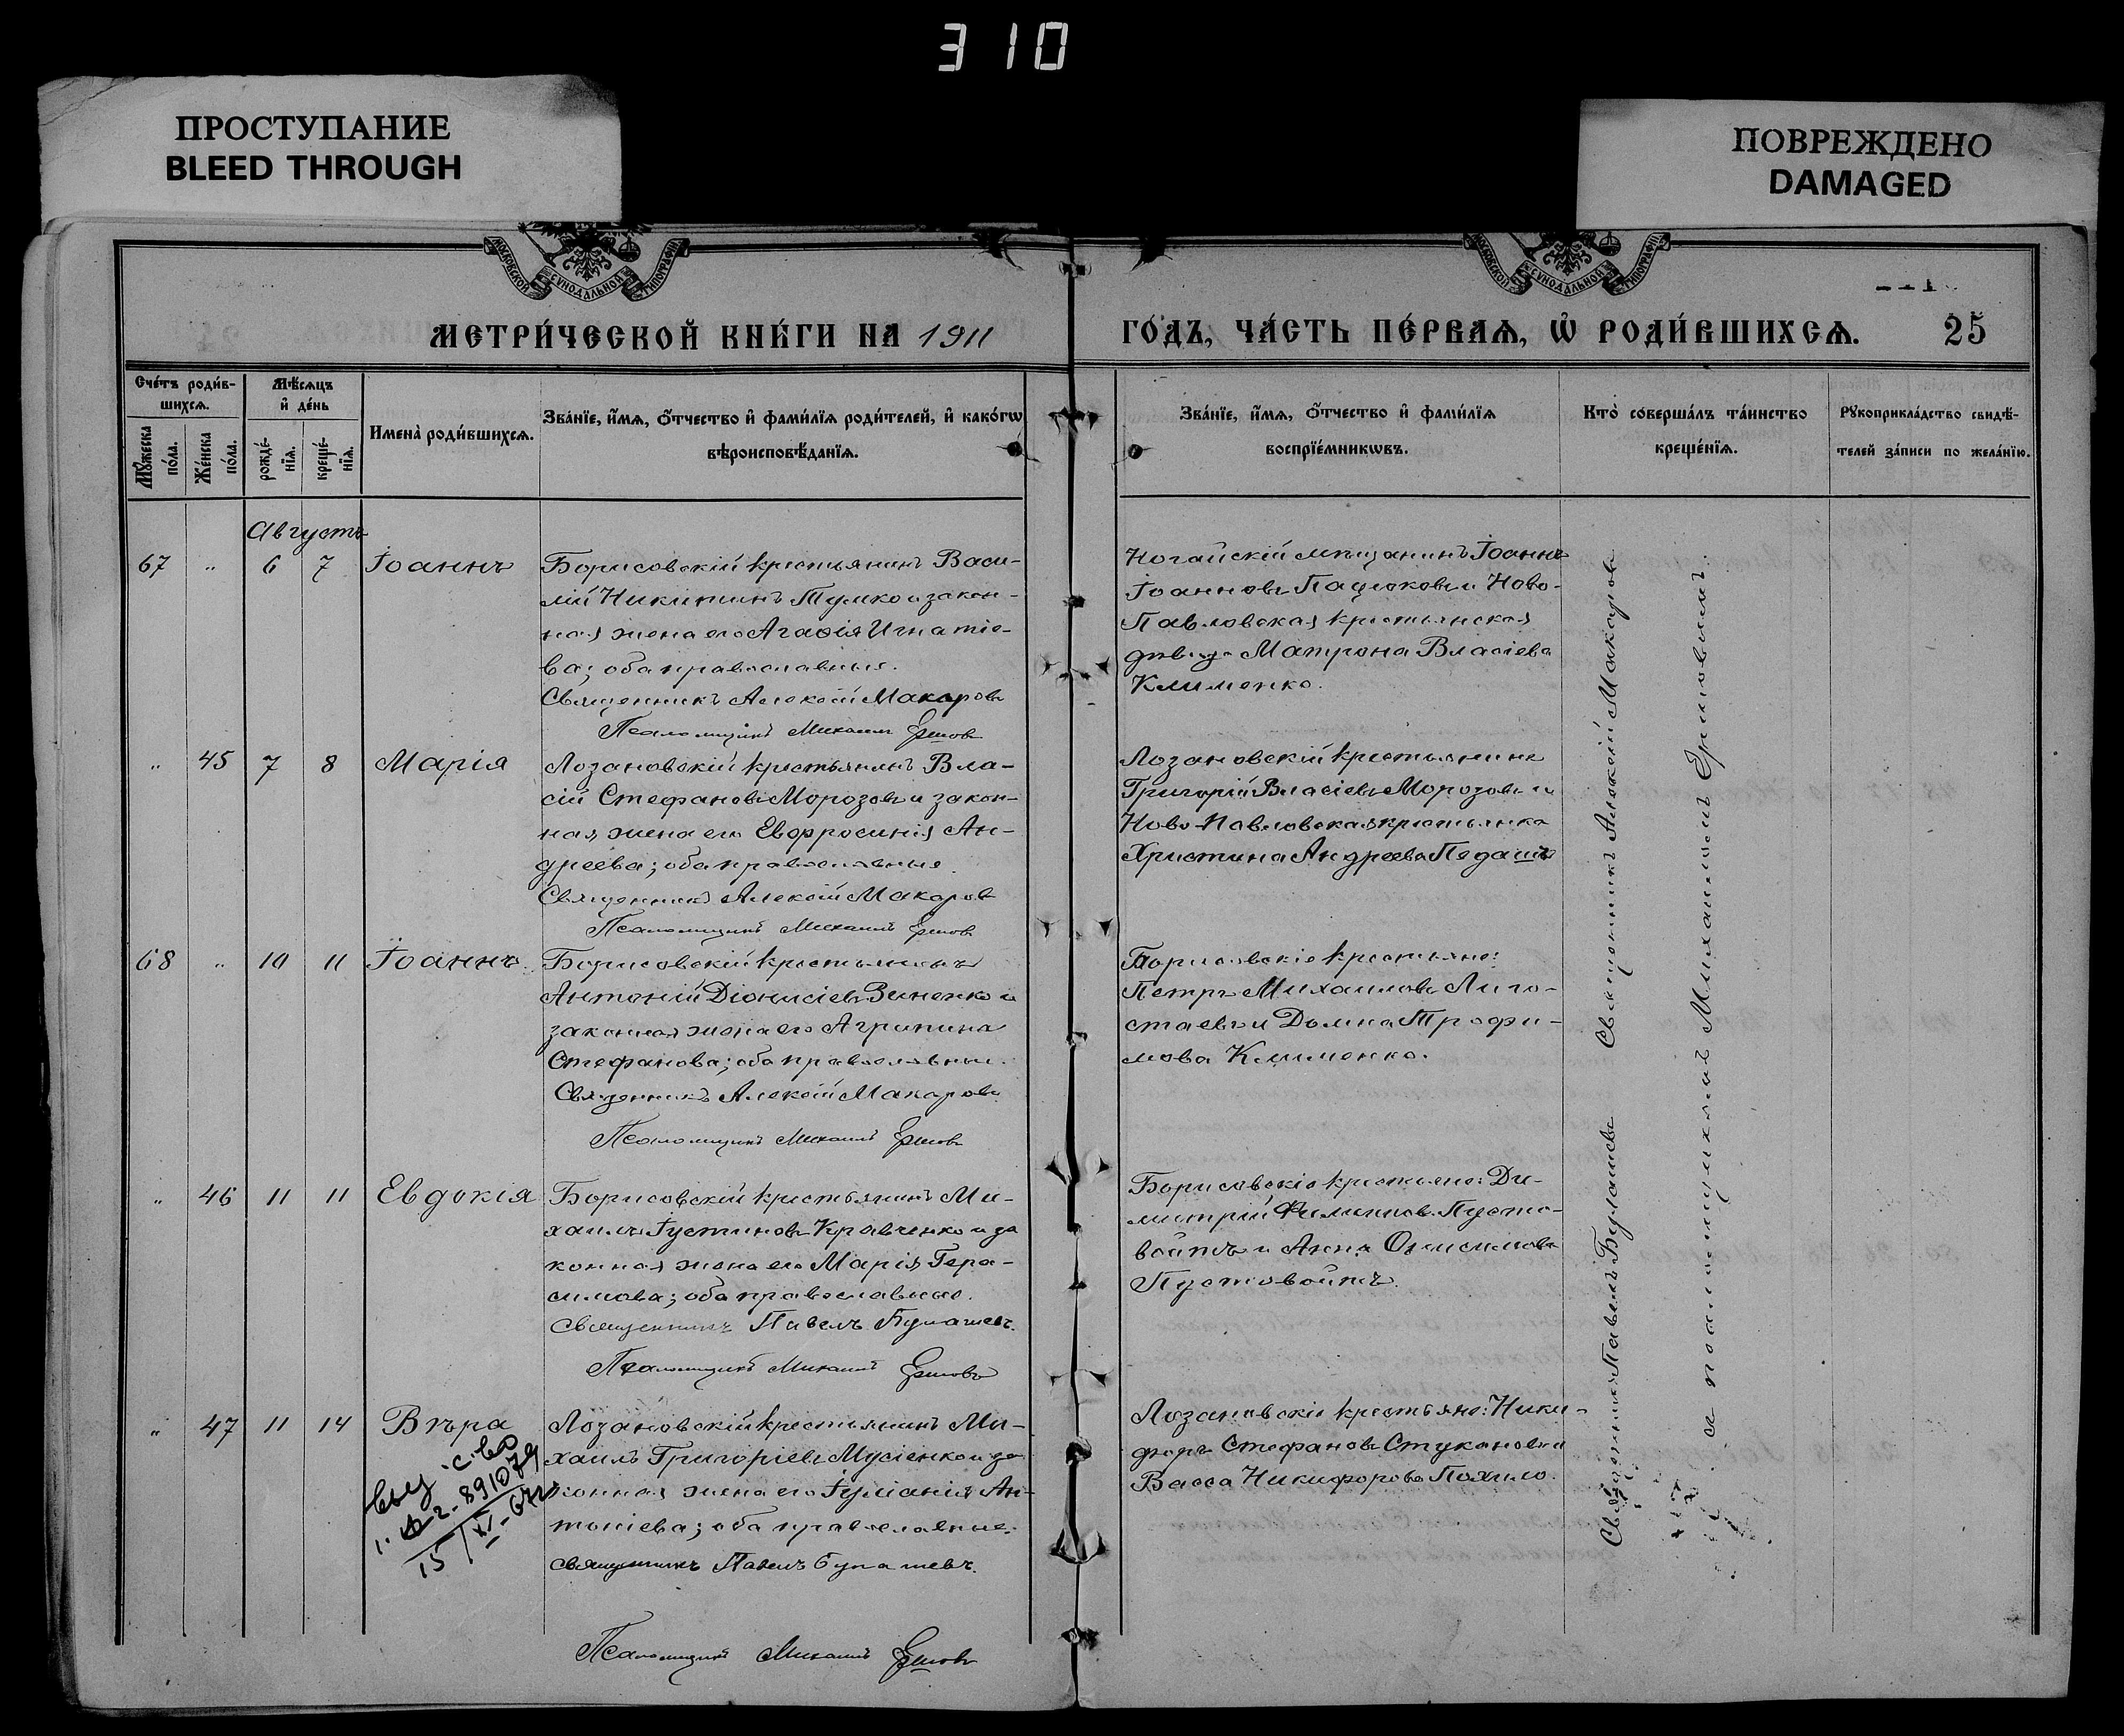 310
ПРОСТУПАНИЕ
BLEED THROUGH
ПОВРЕЖДЕНО
DAMAGED
МОСКОВСКОЙ СУНОДАЛЬНОЙ ТИПОГРАФІИ
МОСКОВСКОЙ СУНОДАЛЬНОЙ ТИПОГРАФІИ
МЕТРИ́ЧЕСКОЙ КНИ́ГИ НА 1911
ГО́ДЪ, ЧА́СТЬ ПЕ́РВАѦ, Ѡ҆ РОДИ́ВШИХСѦ. 25
Сче́тъ роди́в-
шихсѧ.
Мѣ́сѧцъ
и҆ де́нь
Мꙋ́жеска
по́ла.
Же́нска
по́ла.
рожде́-
нїѧ.
креще́-
нїѧ.
Имена̀ роди́вшихсѧ.
Зва́нїе, и҆́мѧ, ѻ҆́тчество и҆ фами́лїѧ роди́телей, и҆ како́гѡ
вѣроисповѣ́данїѧ.
Зва́нїе, и҆́мѧ, ѻ҆́тчество и҆ фами́лїѧ
воспрїе́мникѡвъ.
Кто̀ соверша́лъ та́инство
креще́нїѧ.
Рꙋкоприкла́дство свидѣ́-
телей за́писи по жела́нїю.
Августъ
67 " 6 7 Іоаннъ
Борисовскій крестьянинъ Васи-
лій Никитинъ Тумко и закон-
ная жена его Агаѳія Игнатіе-
ва; оба православные.
Священникъ Алексій Макаровъ
Псаломщикъ Михаилъ Ершовъ
Ногайскій мѣщанинъ Іоаннъ
Іоанновъ Пацюковъ и Ново-
Павловская крестьянская
дѣвица Матрона Власіева
Клименко.
" 45 7 8 Марія
Лозановскій крестьянинъ Вла-
сій Стефановъ Морозовъ и закон-
ная жена его Евфросинія Ан-
дреева; оба православные.
Священникъ Алексій Макаровъ
Псаломщикъ Михаилъ Ершовъ
Лозановскій крестьянинъ
Григорій Власіевъ Морозовъ и
Ново-Павловская крестьянка
Христина Андреева Педашъ
68 " 10 11 Іоаннъ
Борисовскій крестьянинъ
Антоній Діонисіевъ Зиненко и
законная жена его Агрипина
Стефанова; оба православные.
Священникъ Алексій Макаровъ
Псаломщикъ Михаилъ Ершовъ
Борисовскіе крестьяне:
Петръ Михаиловъ Лиго-
стаевъ и Домна Трофи-
мова Клименко.
" 46 11 11 Евдокія
Борисовскій крестьянинъ Ми-
хаилъ Іустиновъ Кравченко и за
конная жена его Марія Гера-
симова; оба православные.
Священникъ Павелъ Булашевъ.
Псаломщикъ Михаилъ Ершовъ
Борисовскіе крестьяне: Ди-
митрій Филипповъ Пусто-
войтъ и Анна Онисимова
Пустовойтъ.
" 47 11 14 Вѣра
Лозановскій крестьянинъ Ми-
хаилъ Григоріевъ Мусіенко и за
конная жена его Іуліанія Ан-
тоніева; оба православные.
Священникъ Павелъ Булашевъ.
Псаломщикъ Михаилъ Ершовъ
Лозановскіе крестьяне: Ники-
форъ Стефановъ Стукановъ и
Васса Никифорова Похило.
15/XI-67
Священникъ Павелъ Булашевъ Священникъ Алексій Макаровъ
съ псаломщикомъ Михаиломъ Ершовымъ.